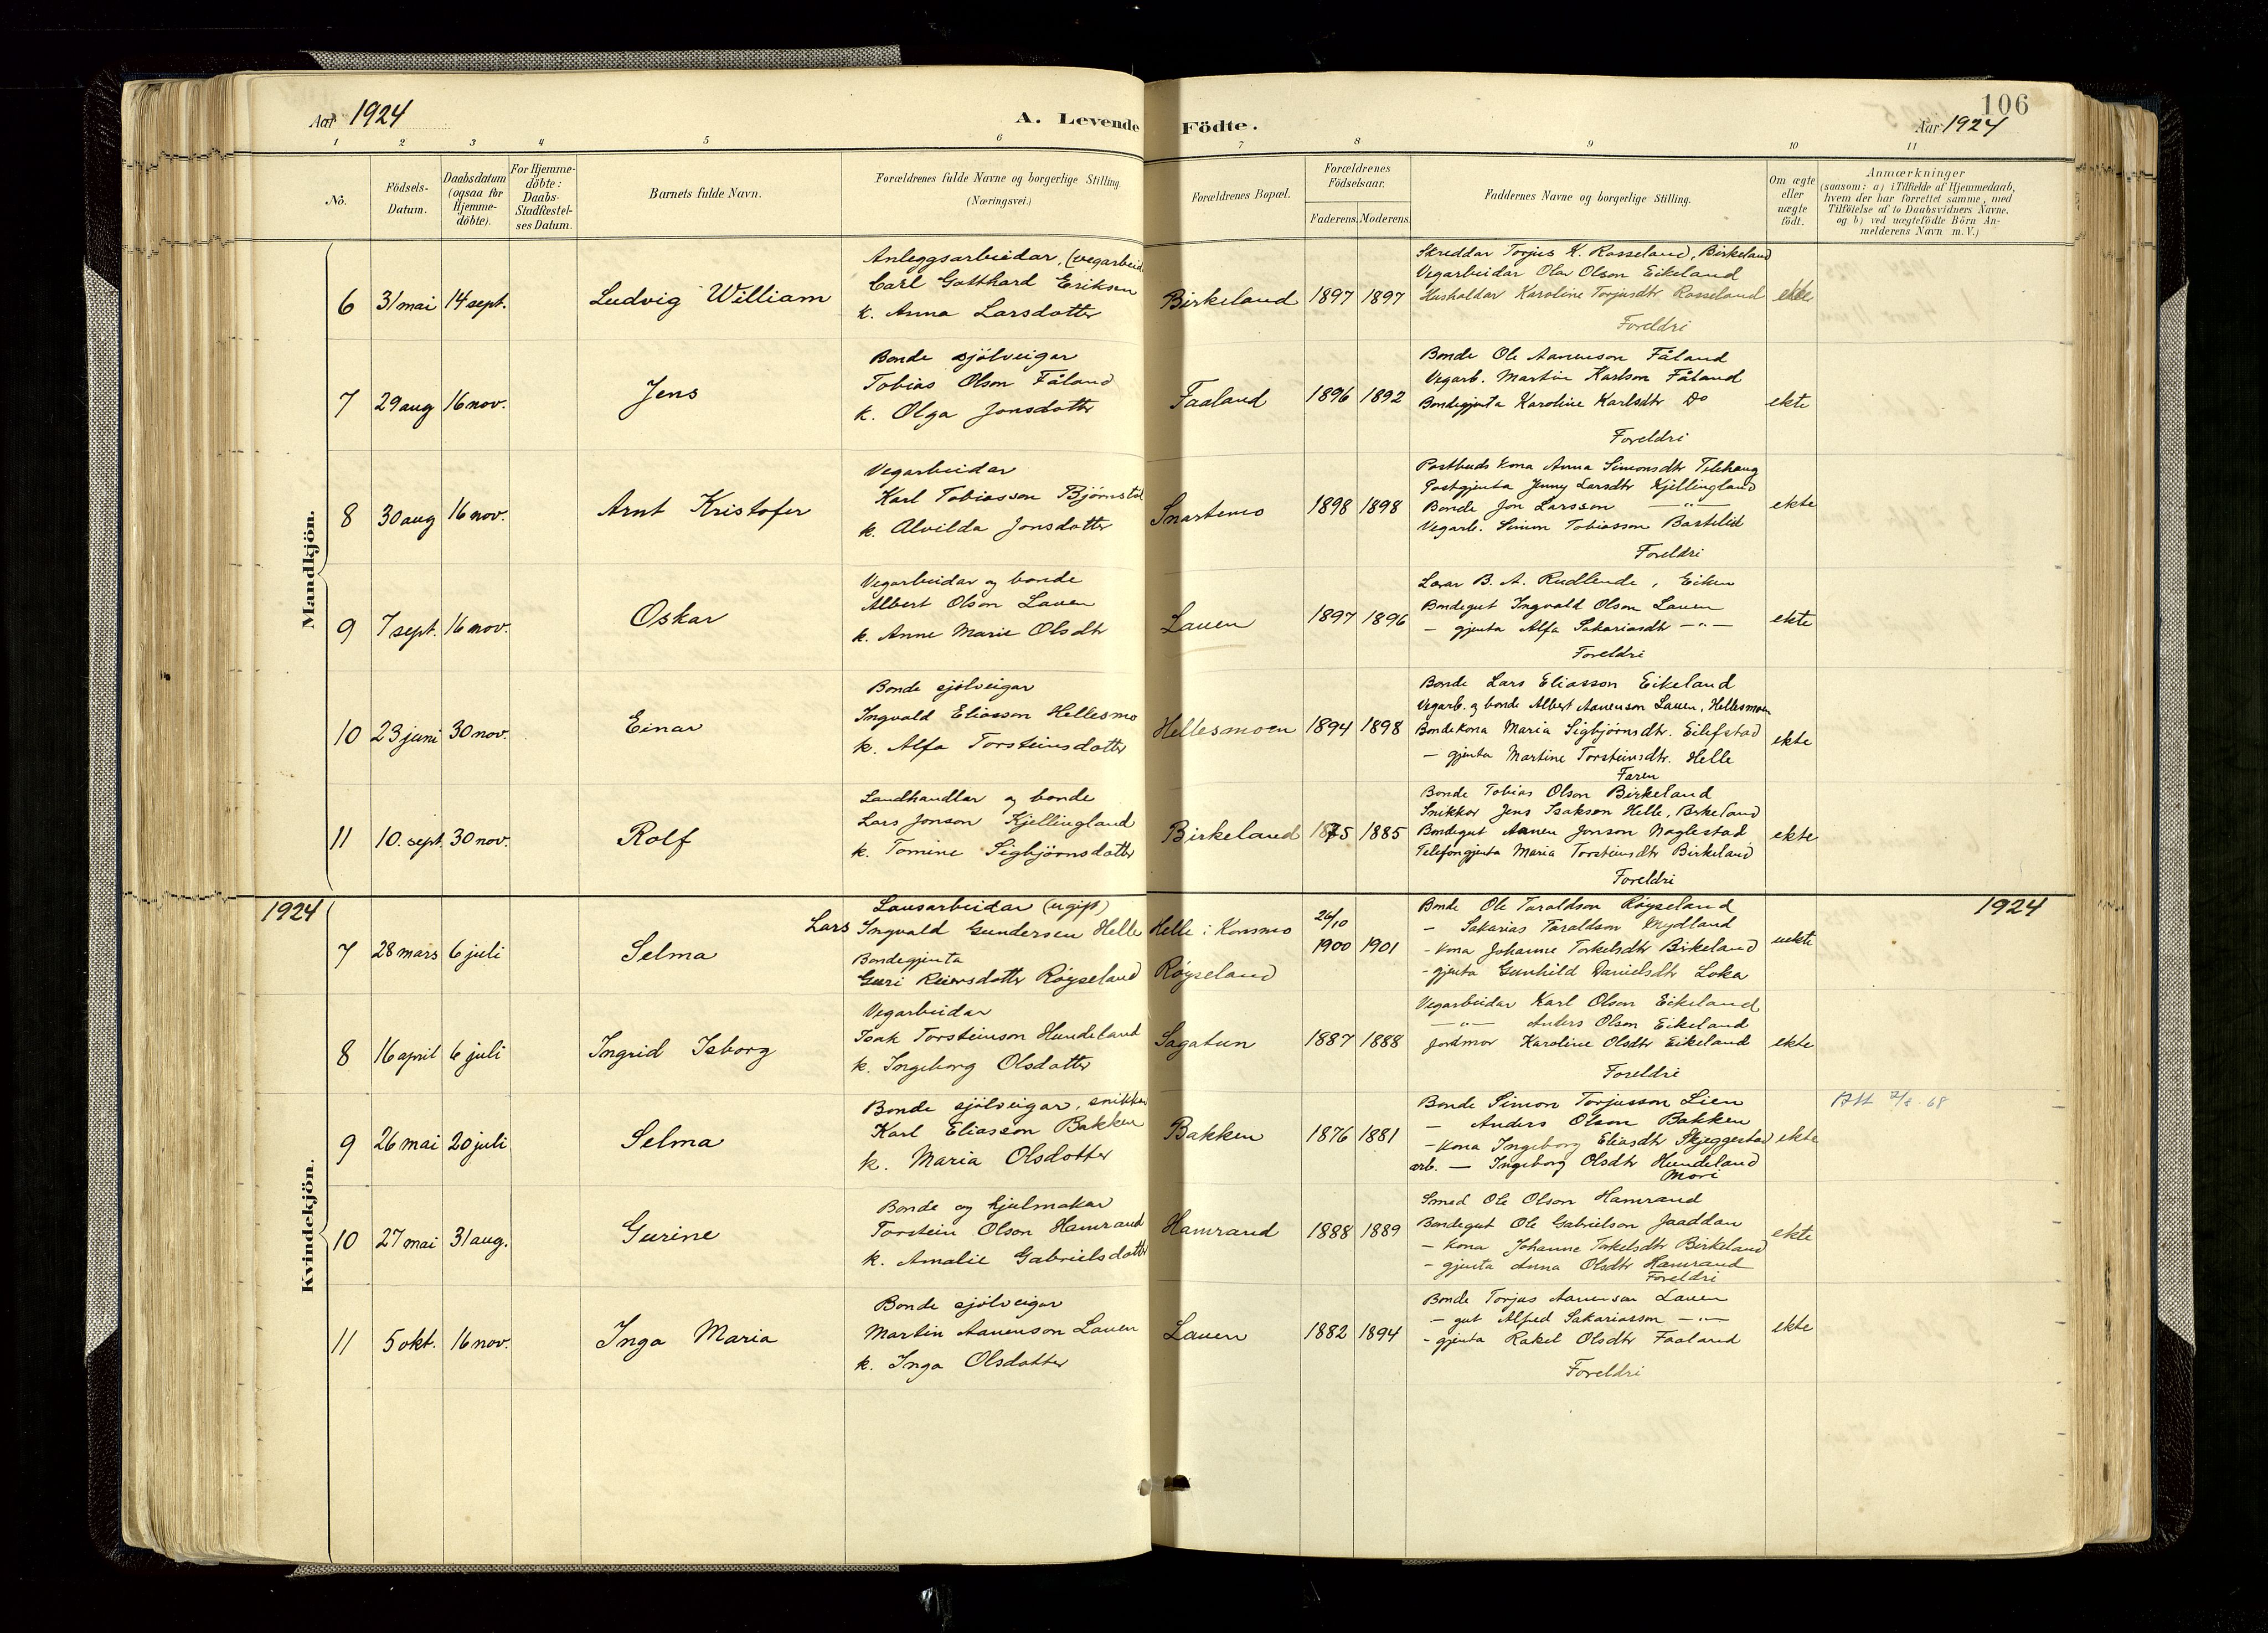 Aar 1924
A. Levende Födte.
106
Aar 1924
1 2 3 4 5 6 7 8 9 10 11
No.
Födsels-Datum.
Daabsdatum (ogsaa for Hjemme-döbte).
For Hjemme-döbte: Daabs-Stadfæstel-ses Datum.
Barnets fulde Navn.
Forældrenes fulde Navne og borgerlige Stilling.
(Næringsvei.)
Forældrenes Bopæl.
Forældrenes Födselsaar.
Faderens. Moderens.
Faddernes Navne og borgerlige Stilling.
Om ægte eller uægte födt.
Anmærkninger
(saasom: a) i Tilfælde af Hjemmedaab,
hvem der har forrettet samme, med
Tilföielse af to Daabsvidners Navne,
og b) ved uægtefödte Börn An-
melderens Navn m. V.)
Mandkjön.
6 31 mai 14 sept. Ludvig William
Anleggsarbeidar, (vegarbeid
Carl Gotthard Eriksen
k. Anna Larsdotter
Birkeland 1897 1897
Skreddar Torjus K. Rosseland, Birkeland
Vegarbeidar Olav Olson Eikeland
Husholdar Karoline Torjusdtr Rosseland
Foreldri
ekte
7 29 aug 16 nov. Jens
Bonde sjölveigar
Tobias Olson Fåland
k. Olga Jonsdotter
Faaland 1896 1892
Bonde Ole Aanenson Fåland
Vegarb. Martin Karlson Fåland
Bondegjenta Karoline Karlsdtr Do
Foreldri
ekte
8 30 aug 16 nov. Arnt Kristofer
Vegarbeidar
Karl Tobiasson Bjørnstøl
k. Alvilda Jonsdotter
Snartemo 1898 1898
Postbuds kona Anna Simonsdtr Telehaug
Postgjenta Jenny Larsdtr Kjellingland
Bonde Jon Larsson — " —
Vegarb. Simon Tobiasson Bastelid
Foreldri
ekte
9 7 sept. 16 nov. Oskar
Vegarbeidar og bonde
Albert Olson Lauen
k. Anne Marie Olsdtr
Lauen 1897 1896
Lærar B. A. Rudlende, Eiken
Bondegut Ingvald Olson Lauen
— gjenta Alfa Sakariasdtr — " —
Foreldri
ekte
10 23 juni 30 nov. Einar
Bonde sjölveigar
Ingvald Eliasson Hellesmo
k. Alfa Torsteinsdotter
Hellesmoen 1894 1898
Bonde Lars Eliasson Eikeland
Vegarb. og bonde Albert Aanenson Lauen, Hellesmoen
Bondekona Maria Sigbjørnsdtr. Eilefstad
— gjenta Martine Torsteinsdtr. Helle
Faren
ekte
11 10. sept. 30 nov. Rolf
Landhandlar og bonde
Lars Jonson Kjellingland
k. Tomine Sigbjörnsdotter
Birkeland 1875 1885
Bonde Tobias Olson Birkeland
Snikkar Jens Isakson Helle, Birkeland
Bondegut Aanen Jonson Naglestad
Telefongjenta Maria Torsteinsdtr Birkeland
Foreldri
ekte
1924
1924
Kvindekjön.
7 28 mars 6 juli Selma
Lausarbeidar (ugift)
Lars Ingvald Gundersen Helle
Bondegjenta
Guri Reiersdotter Røyseland
Helle i Konsmo
Røyseland
26/10
1900 1901
Bonde Ole Taraldson Røyseland
— Sakarias Taraldson Mydland
- kona Johanne Torkelsdtr Birkeland
- gjenta Gunhild Danielsdtr Loka
uekte
8 16 april 6 juli Ingrid Isborg
Vegarbeidar
Isak Torsteinson Hundeland
k. Ingeborg Olsdotter
Sagatun 1887 1888
Vegarbeidar Karl Olson Eikeland
— " — Anders Olson Eikeland
Jordmor Karoline Olsdtr Eikeland
Foreldri
ekte
9 26 mai 20 juli Selma
Bonde sjölveigar, snikker
Karl Eliasson Bakken
k. Maria Olsdotter
Bakken 1876 1881
Bonde Simon Torjusson Lien
— Anders Olson Bakken
- kona Ingeborg Eliasdtr Skjeggestad
arb. — Ingeborg Olsdtr Hundeland
Mori
ekte
10 27 mai 31 aug. Gurine
Bonde og hjulmakar
Torstein Olson Hamrand
k. Amalie Gabrielsdotter
Hamrand 1888 1889
Smed Ole Olson Hamrand
Bondegut Ole Gabrielson Jaaddan
— kona Johanne Torkelsdtr Birkeland
- gjenta Anna Olsdtr Hamrand
Foreldri
ekte
11 5 okt. 16 nov. Inga Maria
Bonde sjölveigar
Martin Aanenson Lauen
k. Inga Olsdotter
Lauen 1882 1894
Bonde Torjus Aanenson Lauen
— gut Alfred Sakariasson — " —
- gjenta Rakel Olsdtr Faaland
Foreldri
ekte